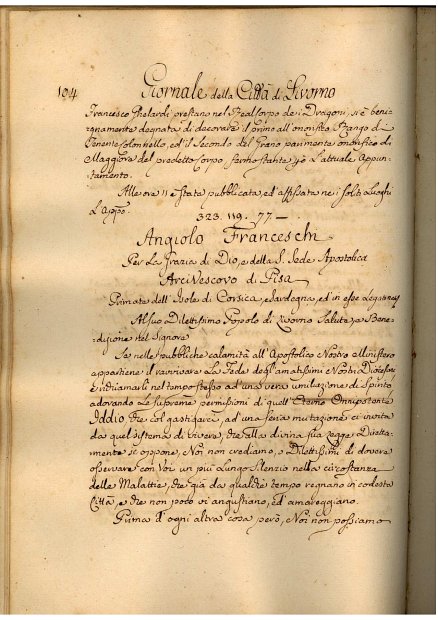 104 Giornale della Città di Livorno
Francesco Ghelardi prestano nel Real Corpo dei Dragoni, si è beni-
gnamente degnata di decorare il primo all'onorifico Rango di
Tenente Colonnello, ed il Secondo del Grado parimente onorifico di
Maggiore del predetto Corpo, fermo stante p. è L'attuale Appun-
tamento.
Alle ore 11 è stata pubblicata, ed affissata nei soliti Luoghi
L'Appo.
323. 119. 77 —
Angiolo Franceschi
Per La Grazia di Dio, e della S. Sede Apostolica
ArciVescovo di Pisa
Primate dell'Isole di Corsica, e Sardegna, ed in esse Legato
Al Suo Dilettissimo Popolo di Livorno Salute, e Bene-
dizione nel Signore
Se nelle pubbliche calamità all'Apostolico Nostro Ministero
appartiene il ravvivare La Fede degl'amatissimi Nostri Diocesani
e richiamarli nel tempo stesso ad una vera umiliazione di Spirito
adorando Le supreme permissioni di quell'Eterno Onnipotente
Iddio, che col gastigarci, ad una seria mutazione ci invita
da quel sistema di vivere, che alla divina sua Legge Diretta-
mente si oppone, Noi non crediamo, o Dilettissimi di dovere
osservare con Voi un più Lungo Silenzio nella circostanza
delle Malattie, che già da qualche tempo regnano in codesta
Città, e che non poco vi angustiano, ed amareggiano.
Prima d'ogni altra cosa però, Noi non possiamo